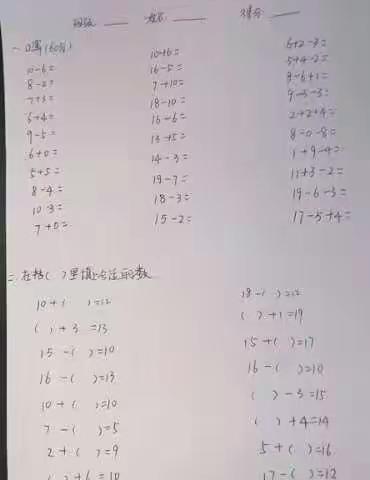 班级 ____ 姓名 ____ 得分 ____
一、口算(60分)
10-6=
8-2=
7+3=
6+4=
9-5=
6+0=
5+5=
8-4=
10-3=
7+0=
10+6=
16-5=
7+10=
18-10=
16-6=
13+5=
14-3=
19-7=
18-3=
15-2=
6+2-3=
5+4-2=
9-6+1=
9-3-3=
2+2+4=
8-0-8=
1+9-4=
11+3-2=
19-6-3=
17-5+4=
二、在括( )里填上合适的数
10+( )=12
( )+3=13
15-( )=10
16-( )=13
10+( )=10
7-( )=5
2+( )=9
( )+6=10
18-( )=12
( )+1=19
15+( )=17
16-( )=10
( )-3=15
( )+4=14
5+( )=16
17-( )=12